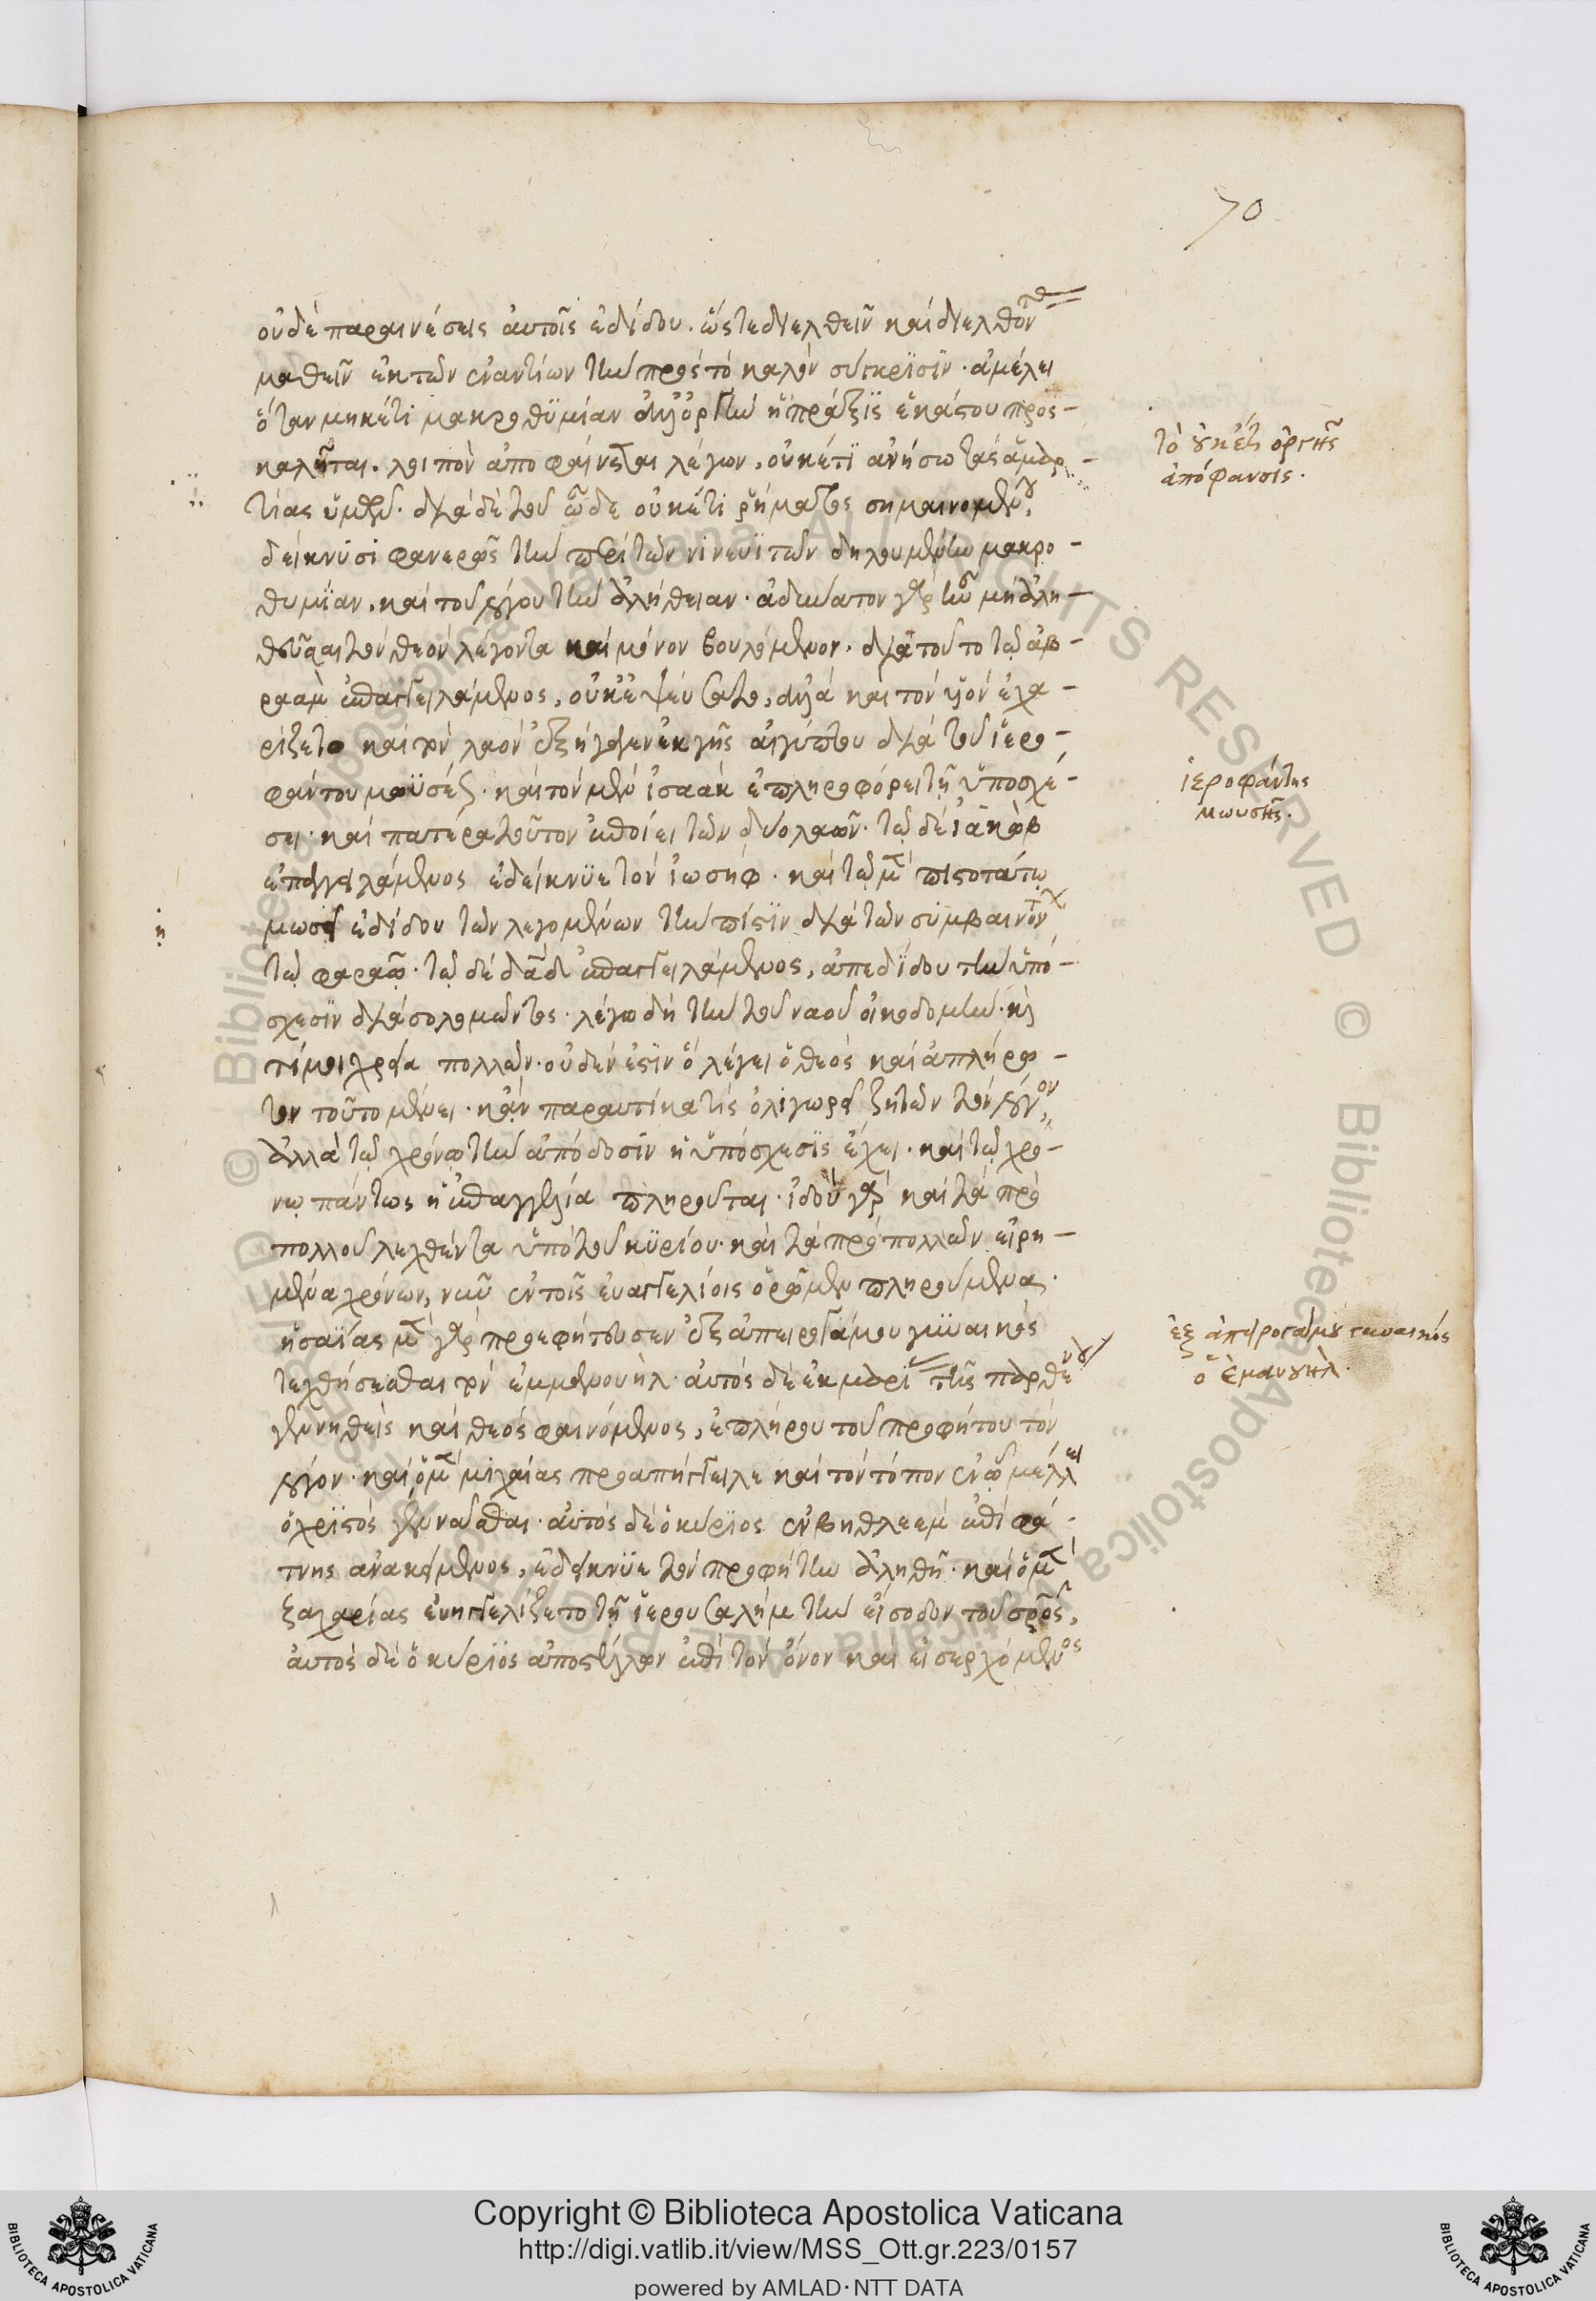 70
οὐδὲ παραινέσεις αὐτοῖς ἐδίδου. ὥςτε διελθεῖν καὶ διελθόντας
μαθεῖν ἐκ τῶν ἐναντίων τὴν πρὸς τὸ καλὸν σύγκρισιν. ἀμέλει
ὅταν μηκέτι μακροθυμίαν ἀλλ' ὀργὴν ἡ πράξις ἑκάστου προς-
καλῆται. λοιπὸν ἀποφαίνεται λέγων, οὐκέτι ἀνήσω τὰς ἁμαρ-
τίας ὑμῶν. διὰ δὲ τοῦ ὧδε οὐκέτι ῥήματος σημαινομένου,
δείκνυσι φανερῶς τὴν περὶ τῶν νινευϊτῶν δηλουμένην μακρο-
θυμίαν, καὶ τοῦ λόγου τὴν ἀλήθειαν. ἀδύνατον γὰρ ἦν μὴ ἀλη-
θεῦσαι τὸν θεὸν λέγοντα καὶ μόνον βουλόμενον. διὰ τοῦτο τῷ ἀβ-
ραὰμ ἐπαγγειλάμενος, οὐκ ἐψεύσατο, ἀλλὰ καὶ τὸν υἱὸν ἐχα-
ρίζετο καὶ τὸν λαὸν ἐξήγαγεν ἐκ γῆς αἰγύπτου διὰ τοῦ ἱερο-
φάντου μωϋσέως. καὶ τὸν μὲν ἰσαὰκ ἐπληροφόρει τῇ ὑποσχέ-
σει. καὶ πατέρα τοῦτον ἐποίει τῶν δύο λαῶν. τῷ δὲ ἰακὼβ
ἐπαγγειλάμενος ἐδείκνυε τὸν ἰωσήφ. καὶ τῷ μὲν πιστοτάτῳ
μωσεῖ ἐδίδου τῶν λεγομένων τὴν πίστιν διὰ τῶν συμβαινόντων
τῷ φαραῷ. τῷ δὲ δαδ ἐπαγγειλάμενος, ἀπεδίδου τὴν ὑπό-
σχεσιν διὰ σολομῶντος. λέγω δὴ τὴν τοῦ ναοῦ οἰκοδομήν. καὶ
τί μοι χρεία πολλῶν. οὐδέν ἐστιν ὃ λέγει ὁ θεὸς καὶ ἀπλήρω-
τον τοῦτο μένει. κἂν παραυτίκα τίς ὀλιγωρεῖ ζητῶν τὸν λόγον,
ἀλλὰ τῷ χρόνῳ τὴν ἀπόδοσιν ἡ ὑπόσχεσις ἔχει. καὶ τῷ χρό-
νῳ πάντως ἡ ἐπαγγελία πληροῦται. ἰδοὺ γὰρ καὶ τὰ πρὸ
πολλοῦ λεχθέντα ὑπὸ τοῦ κυρίου. καὶ τὰ πρὸ πολλῶν εἰρη-
μένα χρόνων, νῦν ἐν τοῖς εὐαγγελίοις ὁρῶμεν πληρούμενα.
ἡσαΐας μὲν γὰρ προεφήτευσεν ἐξ ἀπειρογάμου γυναικὸς
τεχθήσεσθαι τὸν ἐμμανουὴλ. αὐτὸς δὲ ἐκ μαρίας τῆς παρθένου
γεννηθεὶς καὶ θεὸς φαινόμενος, ἐπλήρου τοῦ προφήτου τὸν
λόγον. καὶ ὁ μὲν μιχαίας προαπήγγειλε καὶ τὸν τόπον ἐν ᾧ μέλλει
ὁ χριστὸς γεννᾶσθαι. αὐτὸς δὲ ὁ κύριος ἐν βηθλεὲμ ἐπὶ φά-
τνης ἀνακείμενος, ἐδείκνυε τὸν προφήτην ἀληθῆ. καὶ ὁ μὲν
ζαχαρίας εὐηγγελίζετο τῇ ἱερουσαλὴμ τὴν εἴσοδον τοῦ σρς,
αὐτὸς δὲ ὁ κύριος ἀποστέλλων ἐπὶ τὸν ὄνον καὶ εἰσερχόμενος
τὸ οὐκέτι ὀργῆς
ἀπόφανσις.
ἱεροφάντης
μωυσῆς.
ἐξ ἀπειρογάμου γυναικός
ὁ ἐμανουήλ.
Copyright © Biblioteca Apostolica Vaticana
http://digi.vatlib.it/view/MSS_Ott.gr.223/0157
powered by AMLAD·NTT DATA
BIBLIOTECA APOSTOLICA VATICANA
BIBLIOTECA APOSTOLICA VATICANA